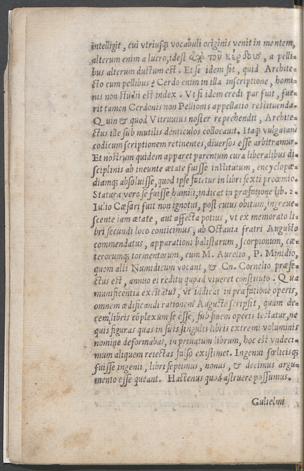 intelligit, cui vtriusq; vocabuli originis venit in mentem,
alterum enim a lucro, idest ἀπὸ τοῦ κέρδους, a pelli-
bus alterum ductum est. Et si idem sit, quid Archite-
cto cum pellibus? Cerdo enim in illa inscriptione, homi-
nis non est index. Vt si idem credi par fuit, fue-
rit tamen Cerdonis non Pellionis appellatio restituenda.
Quin & quod Vitruuius noster reprehendit, Archite-
ctus ille sub mutilis denticulos collocauit. Itaq; vulgatam
codicum scriptionem retinentes, diuersos esse arbitramur.
Et nostrum quidem apparet parentum cura liberalibus di-
sciplinis ab ineunte ætate fuisse institutum, encyclopæ-
diamq; absoluisse, quod ipse fatetur in libri sexti proœmio.
Statura vero se fuisse humili, indicat in præfatione lib. 2.
Iulio Cæsari fuit non ignotus, post cuius obitum, ingraue-
scente iam ætate, aut affecta potius, vt ex memorato li-
bri secundi loco conijcimus, ab Octauia fratri Augusto
commendatus, apparationi balistarum, scorpionum, cæ-
terorumq; tormentorum, cum M. Aurelio, P. Minidio,
quem alij Numidicum vocant, & Cn. Cornelio præfe-
ctus est, annuo ei reditu quoad viueret constituto. Qua
munificentia excitatus, vt indicat in præfatione operis,
omnem ædificandi rationem Augusto scripsit, quam de-
cem libris cōplexum se esse, sub finem operis testatur, ne
quis figuras quas in suis singulis libris extremi voluminis
nomine deformabat, in priuatum librum, hoc est vndeci-
mum aliquem reiectas falso existimet. Ingenui fœlicisq;
fuisse ingenij, libri septimus, nonus, & decimus argu-
mento esse queant. Hactenus quod astruere possumus.
Gulielmi